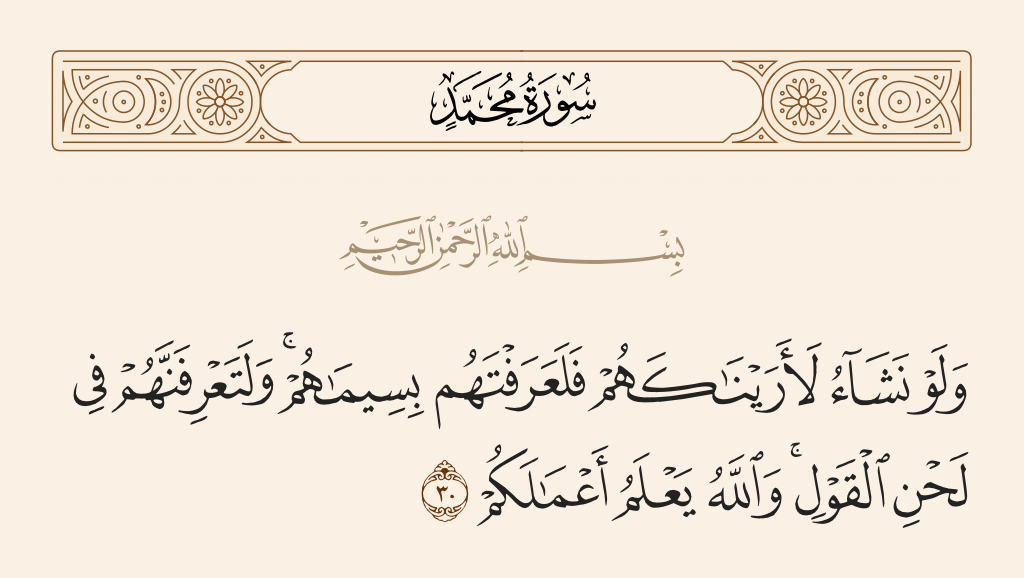 سُورَةُ مُحَمَّدٍ
بِسْمِ ٱللَّهِ ٱلرَّحْمَٰنِ ٱلرَّحِيمِ
وَلَوْ نَشَآءُ لَأَرَيْنَٰكَهُمْ فَلَعَرَفْتَهُم بِسِيمَٰهُمْ ۚ وَلَتَعْرِفَنَّهُمْ فِى
لَحْنِ ٱلْقَوْلِ ۚ وَٱللَّهُ يَعْلَمُ أَعْمَٰلَكُمْ ٣٠